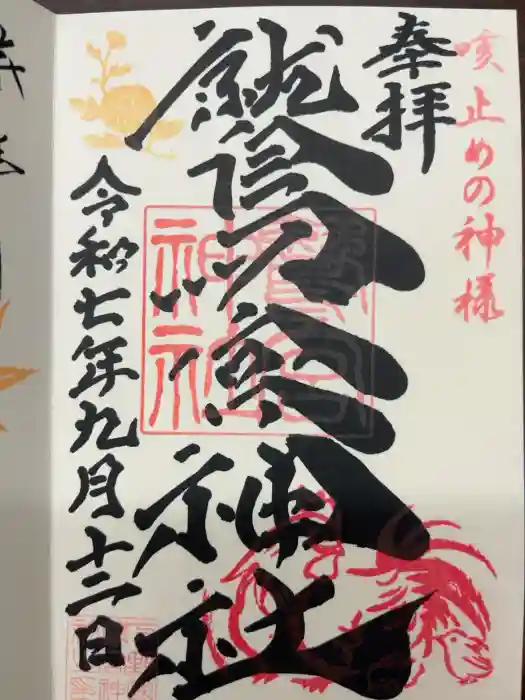 咳止めの神様
奉拝
鷲宮神社
鷲宮
神社
令和七年九月十二日